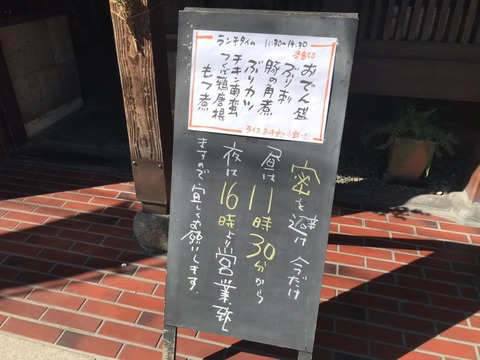 ランチタイム 11:30〜14:30
おでん盛
ぶり刺
豚の角煮
ぶりカツ
チキン南蛮
鶏唐揚
もつ煮
ライス
密を避け 今だけ
昼は11時30分から
夜は16時より営業致し
ますので宜しくお願いします